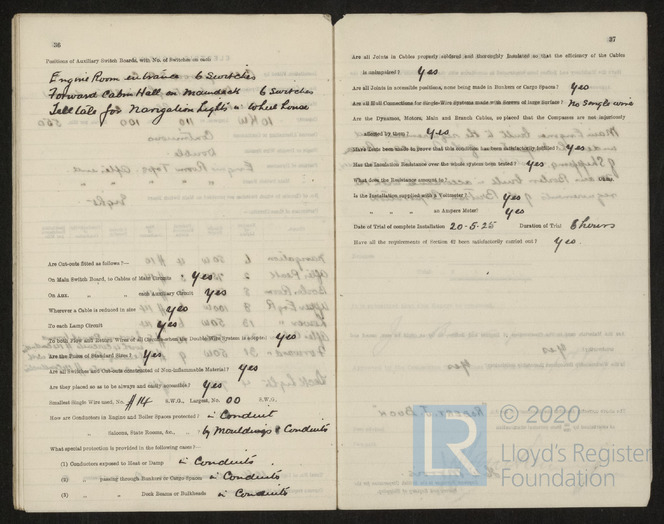 36
Positions of Auxiliary Switch Boards, with No. of Switches on each
Engine Room entrance 6 Switches
Forward Cabin Hall on Maindeck 6 Switches
Tell tale for Navigation Lights in Wheel House
Are Cut-outs fitted as follows?—
On Main Switch Board, to Cables of Main Circuits Yes
On Aux. " " each Auxiliary Circuit Yes
Wherever a Cable is reduced in size Yes
To each Lamp Circuit Yes
To both Flow and Return Wires of all Circuits when the Double Wire System is adopted Yes
Are the Fuses of Standard Sizes? Yes
Are all Switches and Cut-outs constructed of Non-inflammable Material? Yes
Are they placed so as to be always and easily accessible? Yes
Smallest Single Wire used, No. #14 S.W.G., Largest, No. 00 S.W.G.
How are Conductors in Engine and Boiler Spaces protected? in Conduit
" Saloons, State Rooms, &c., " by Mouldings & Conduits
What special protection is provided in the following cases?—
(1) Conductors exposed to Heat or Damp in Conduits
(2) " passing through Bunkers or Cargo Spaces in Conduits
(3) " " Deck Beams or Bulkheads in Conduits
37
Are all Joints in Cables properly soldered and thoroughly insulated so that the efficiency of the Cables
is unimpaired? Yes
Are all Joints in accessible positions, none being made in Bunkers or Cargo Spaces? Yes
Are all Hull Connections for Single-Wire Systems made with Screws of large Surface? No Single wire
Are the Dynamos, Motors, Main and Branch Cables, so placed that the Compasses are not injuriously
affected by them? Yes
Have Tests been made to prove that this condition has been satisfactorily fulfilled? Yes
Has the Insulation Resistance over the whole system been tested? Yes
What does the Resistance amount to? Ohms.
Is the Installation supplied with a Voltmeter? Yes
" " " an Ampere Meter? Yes
Date of Trial of complete Installation 20-5-25 Duration of Trial 8 hours
Have all the requirements of Section 42 been satisfactorily carried out? Yes.
© 2020
LR
Lloyd's Register
Foundation